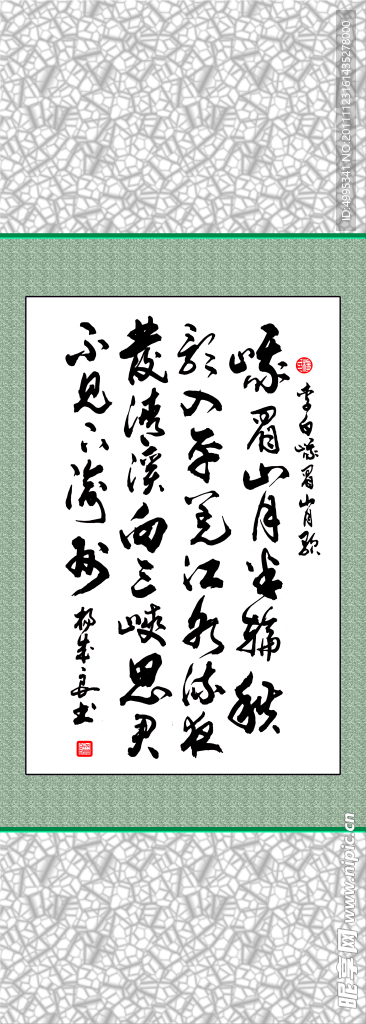 李白峨眉山月歌
峨眉山月半轮秋
影入平羌江水流夜
发清溪向三峡思君
不见下渝州
书
ID:4995341 NO:20111123161435278000
昵享网 www.nipic.cn